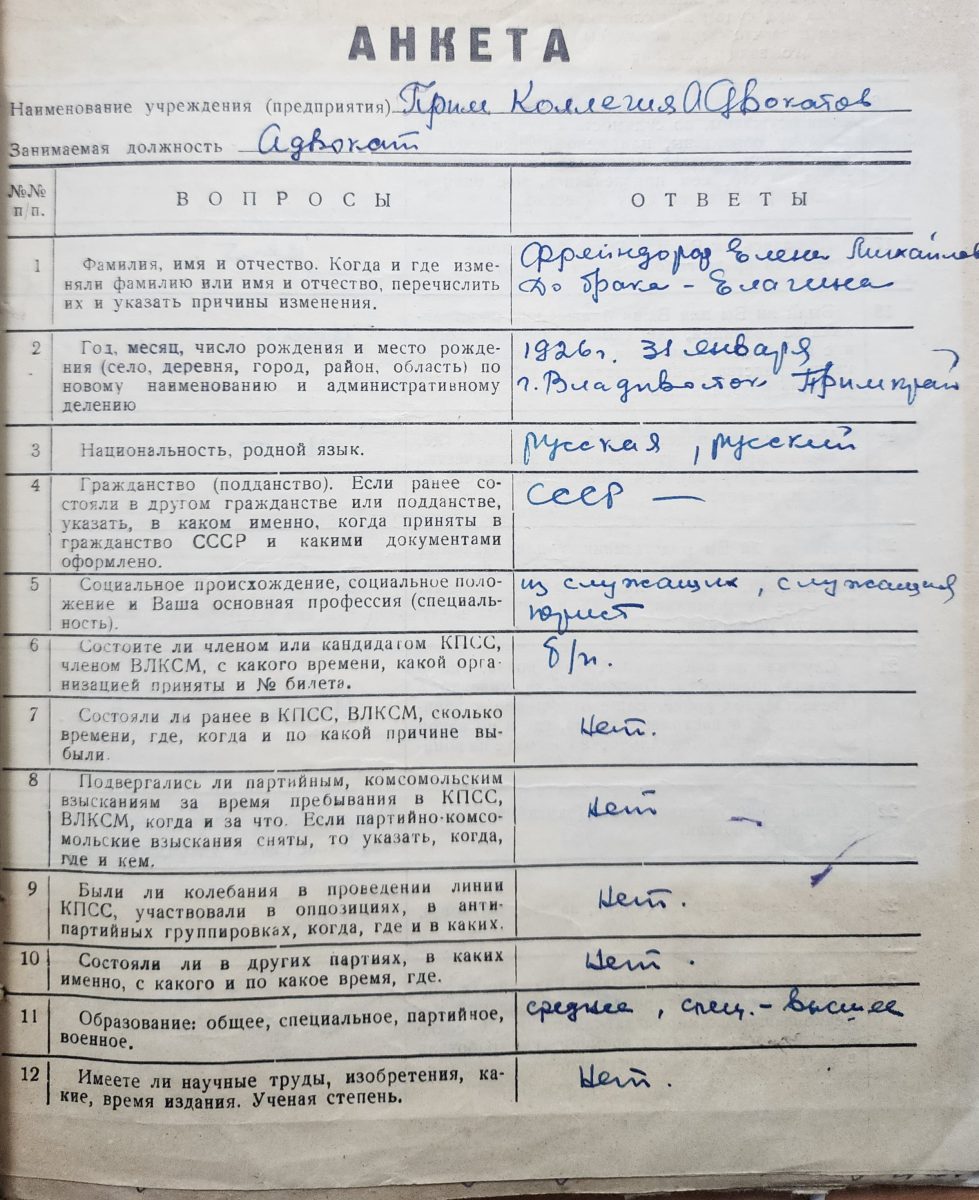 АНКЕТА
Наименование учреждения (предприятия) Прим Коллегия Адвокатов
Занимаемая должность Адвокат
№№ п/п. ВОПРОСЫ ОТВЕТЫ
1 Фамилия, имя и отчество. Когда и где изме-
няли фамилию или имя и отчество, перечислить
их и указать причины изменения.
Елена Михайлов
До брака - Елагина
2 Год, месяц, число рождения и место рожде-
ния (село, деревня, город, район, область) по
новому наименованию и административному
делению
1926 г. 31 января
г. Владивосток Примкрай
3 Национальность, родной язык.
русская, русский
4 Гражданство (подданство). Если ранее со-
стояли в другом гражданстве или подданстве,
указать, в каком именно, когда приняты в
гражданство СССР и какими документами
оформлено.
СССР —
5 Социальное происхождение, социальное поло-
жение и Ваша основная профессия (специаль-
ность).
из служащих, служащая
юрист
6 Состоите ли членом или кандидатом КПСС,
членом ВЛКСМ, с какого времени, какой орга-
низацией приняты и № билета.
б/п.
7 Состояли ли ранее в КПСС, ВЛКСМ, сколько
времени, где, когда и по какой причине вы-
были.
Нет.
8 Подвергались ли партийным, комсомольским
взысканиям за время пребывания в КПСС,
ВЛКСМ, когда и за что. Если партийно-комсо-
мольские взыскания сняты, то указать, когда,
где и кем.
Нет
9 Были ли колебания в проведении линии
КПСС, участвовали в оппозициях, в анти-
партийных группировках, когда, где и в каких.
Нет.
10 Состояли ли в других партиях, в каких
именно, с какого и по какое время, где.
Нет.
11 Образование: общее, специальное, партийное,
военное.
среднее, спец.- высшее
12 Имеете ли научные труды, изобретения, ка-
кие, время издания. Ученая степень.
Нет.